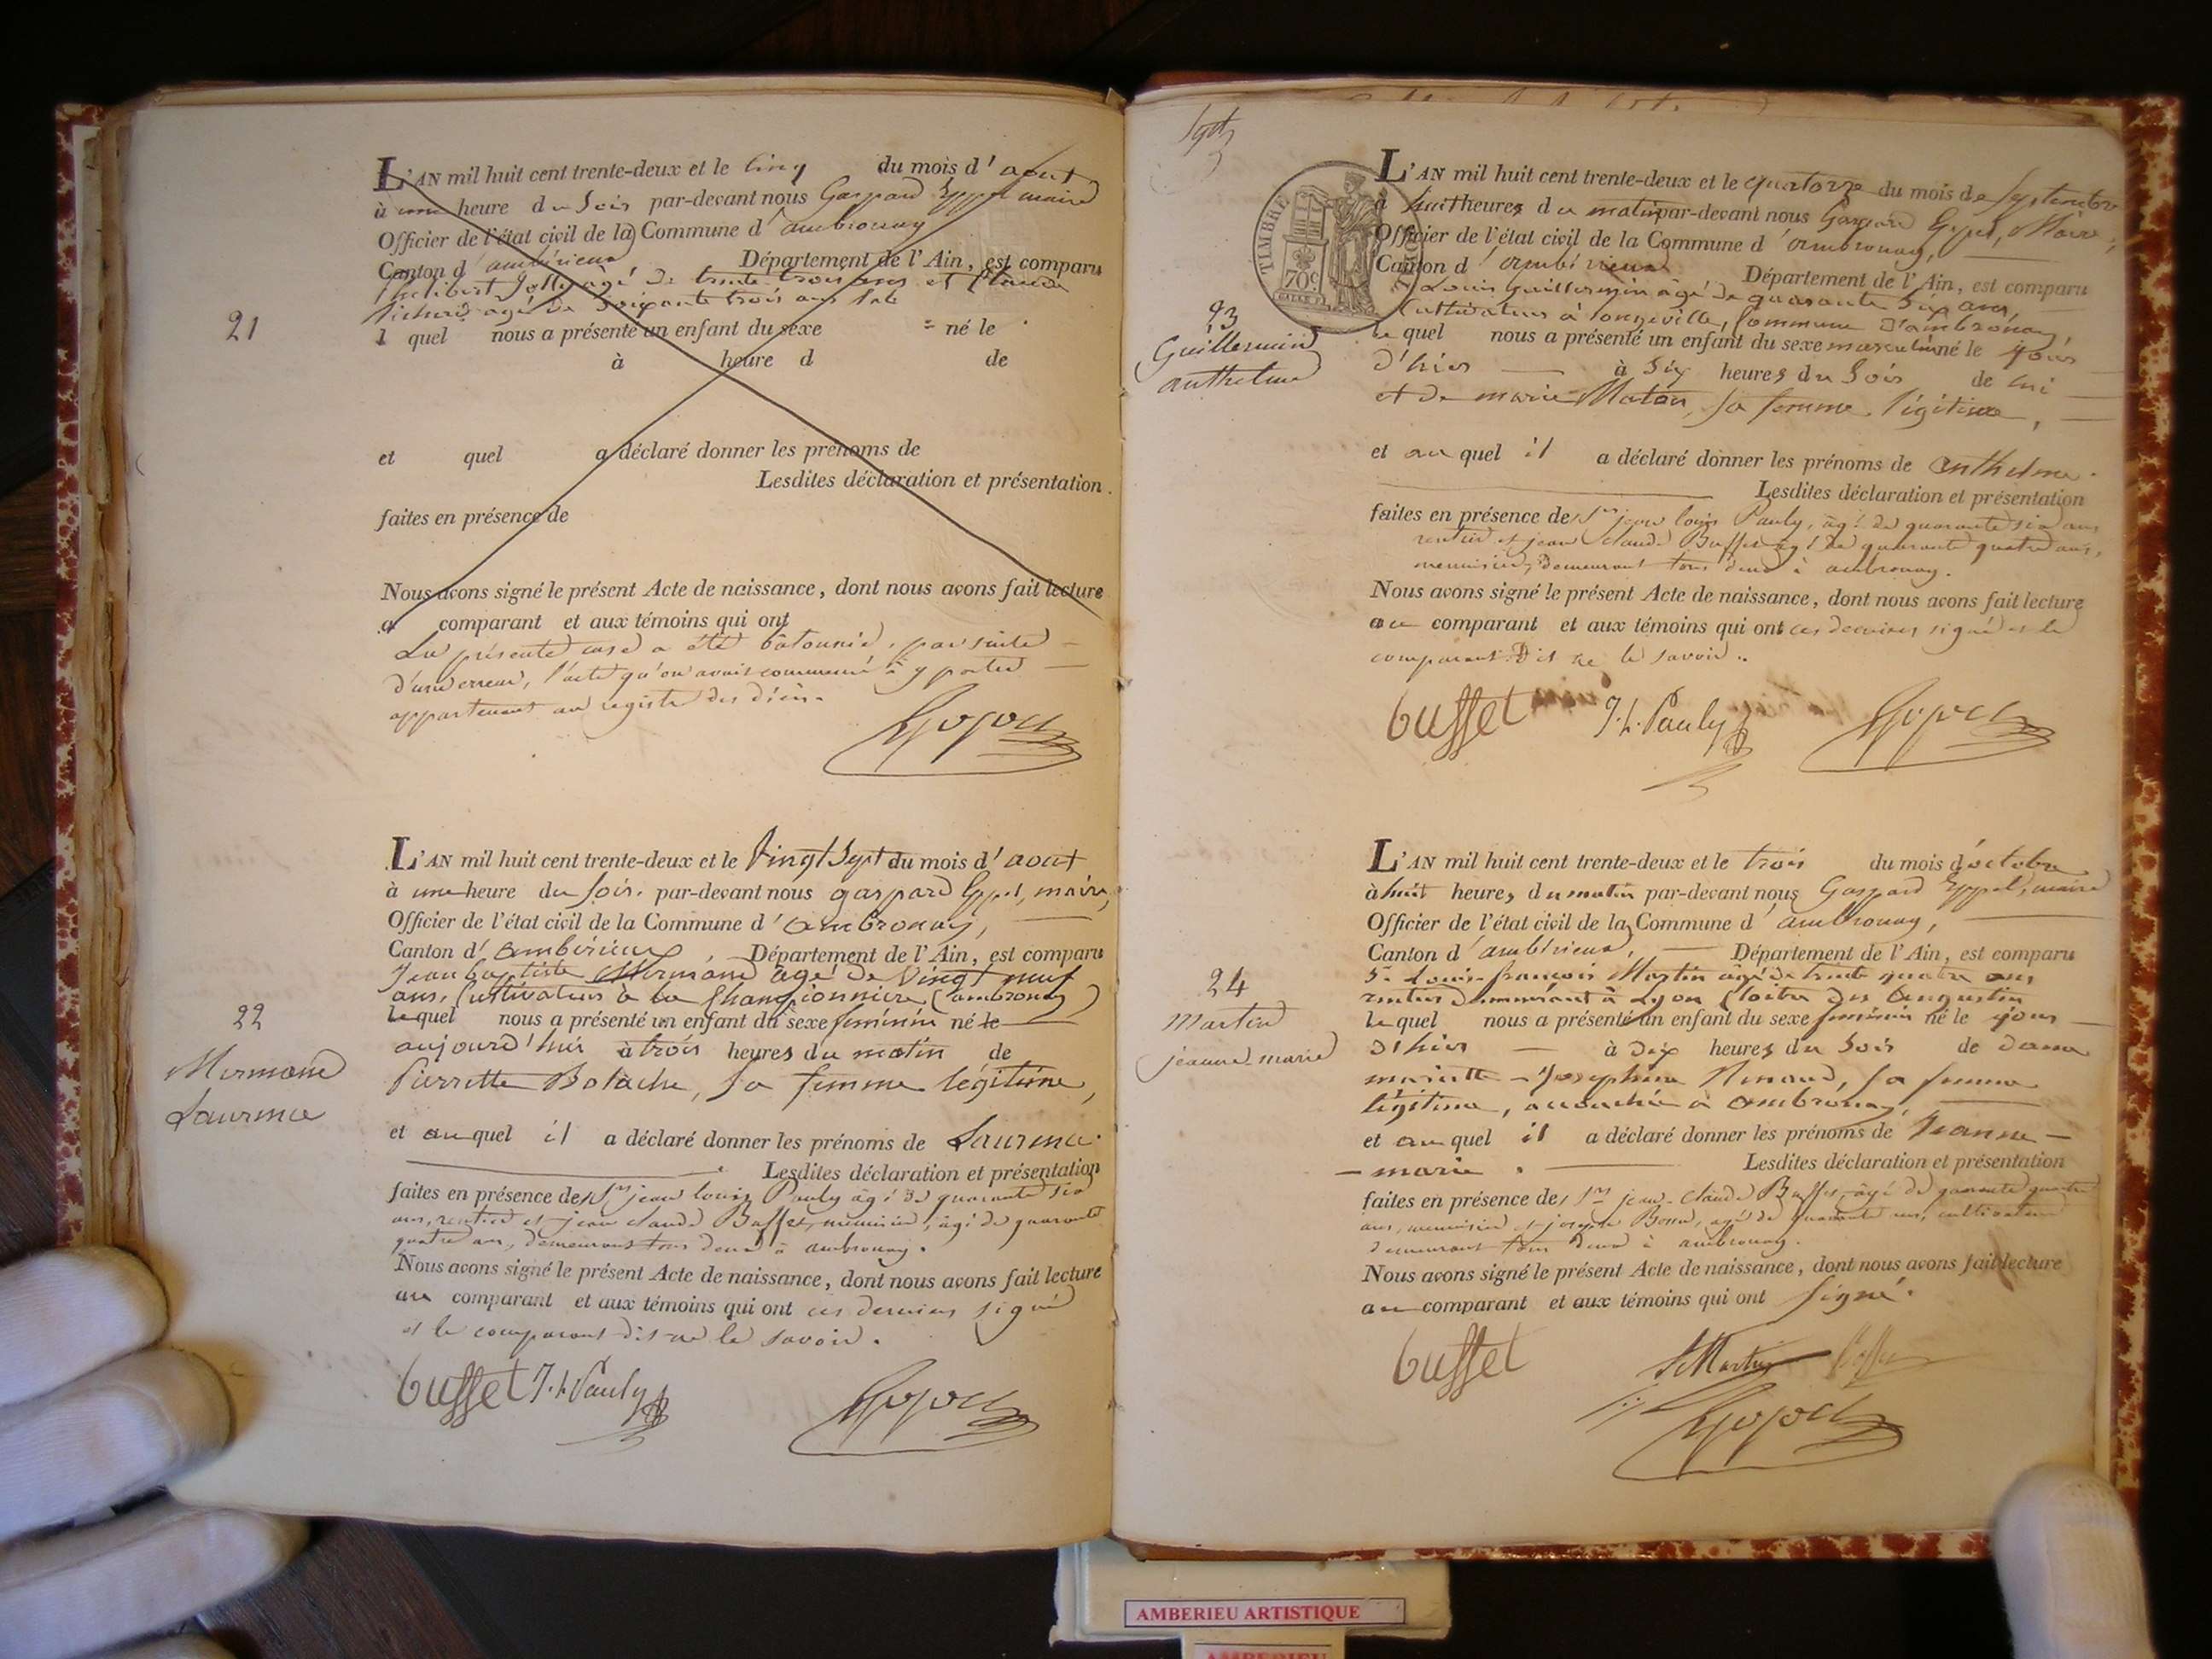 L'AN mil huit cent trente-deux et le cinq du mois d'aout
à une heure du soir par-devant nous Gaspard Eyppel maire
Officier de l'état civil de la Commune d'ambronay
Canton d'ambérieux Département de l'Ain, est comparu
Philibert Jolly agé de trente trois ans et Claude
Richerd agé de soixante trois ans
21
l quel nous a présenté un enfant du sexe = né le
à heure d de
et quel a déclaré donner les prénoms de
Lesdites déclaration et présentation
faites en présence de
Nous avons signé le présent Acte de naissance, dont nous avons fait lecture
a comparant et aux témoins qui ont
La présente case a été bâtonnée, par suite
d'une erreur, l'acte qu'on avait commencé à y porter
appartenant au registre des décès.
L'AN mil huit cent trente-deux et le vingt sept du mois d'aout
à une heure du soir. par-devant nous gaspard Eyppel, maire,
Officier de l'état civil de la Commune d'ambronay,
Canton d'ambérieux Département de l'Ain, est comparu
Jean baptiste Mermand agé de vingt neuf
ans, Cultivateur à la Championnière (ambronay)
22
Mermand
Laurence
le quel nous a présenté un enfant du sexe féminin né le
aujourd'hui à trois heures du matin de
Pierrette Bolache, sa femme légitime,
et au quel il a déclaré donner les prénoms de Laurence.
Lesdites déclaration et présentation
faites en présence des Srs jean louis Pauly âgé de quarante six
ans, rentier et jean claude Buffet, menuisier, âgé de quarante
quatre ans, demeurant tous deux à ambronay.
Nous avons signé le présent Acte de naissance, dont nous avons fait lecture
au comparant et aux témoins qui ont ces derniers signé
et le comparant dit ne le savoir.
buffet J. L. Pauly
Sept
L'AN mil huit cent trente-deux et le quatorze du mois de Septembre
à huit heures du matin par-devant nous Gaspard Eyppel, Maire,
Officier de l'état civil de la Commune d'ambronay,
Canton d'ambérieux Département de l'Ain, est comparu
TIMBRE
70c
Louis Guillermin âgé de quarante six ans,
Cultivateur à longeville, Commune d'ambronay
23
Guillermin
anthelme
le quel nous a présenté un enfant du sexe masculin né le jour
d'hier à six heures du soir de lui
et de marie Maton, sa femme légitime,
et au quel il a déclaré donner les prénoms de anthelme.
Lesdites déclaration et présentation
faites en présence des Srs jean louis Pauly, âgé de quarante six ans,
rentier et jean claude Buffet âgé de quarante quatre ans,
menuisier, demeurant tous deux à ambronay.
Nous avons signé le présent Acte de naissance, dont nous avons fait lecture
au comparant et aux témoins qui ont ces derniers signé et le
comparant dit ne le savoir.
buffet J. L. Pauly
L'AN mil huit cent trente-deux et le trois du mois d'octobre
à huit heures du matin par-devant nous Gaspard Eyppel, maire
Officier de l'état civil de la Commune d'ambronay,
Canton d'ambérieux, Département de l'Ain, est comparu
Sr. Louis-françois Martin âgé de trente quatre ans
rentier demeurant à Lyon Cloitre des Augustin
24
Martin
jeanne-marie
le quel nous a présenté un enfant du sexe féminin né le jour
d'hier à dix heures du soir de dame
mariette-Josephine Renaud, sa femme
légitime, accouchée à ambronay,
et au quel il a déclaré donner les prénoms de Jeanne-
-marie. Lesdites déclaration et présentation
faites en présence des Srs jean-claude Buffet, âgé de quarante quatre
ans, menuisier et joseph Bossu, agé de quarante ans, cultivateur
demeurant tous deux à ambronay.
Nous avons signé le présent Acte de naissance, dont nous avons fait lecture
au comparant et aux témoins qui ont signé.
buffet Martin
AMBERIEU ARTISTIQUE
AMBERIEU